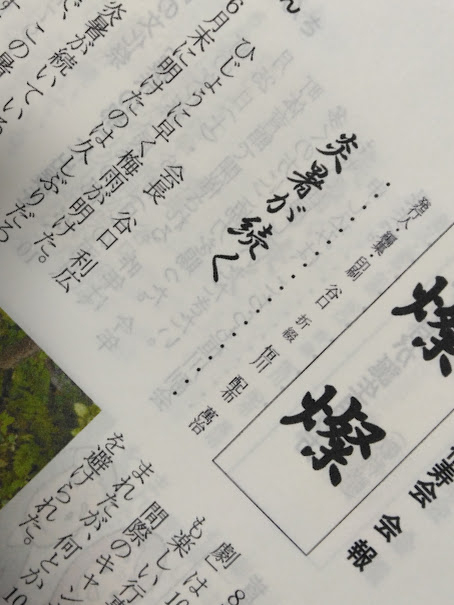 燦燦
寿会 会報
発行人・編集・印刷 谷口 折 綴 恒川 配布 萬治
炎暑が続く
会長 谷口 利広
ひじょうに早く梅雨が明けた。
6月末に明けたのは久しぶりだろ
炎暑が続いている
この暑
劇」は
も楽しい行事
間際のキャン
まれたが、何とか
を避けられた。